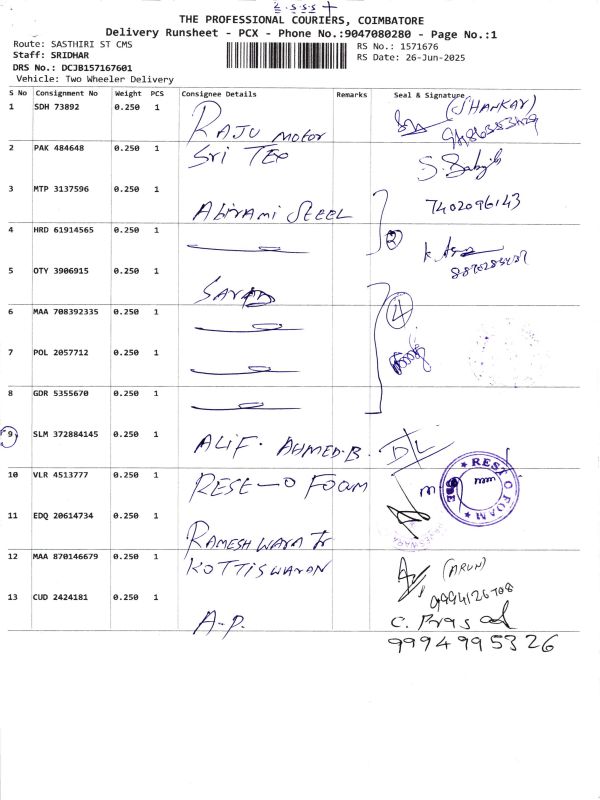 THE PROFESSIONAL COURIERS, COIMBATORE
Delivery Runsheet - PCX - Phone No.:9047080280 - Page No.:1
Route: SASTHIRI ST CMS
RS No.: 1571676
Staff: SRIDHAR
RS Date: 26-Jun-2025
DRS No.: DCJB157167601
Vehicle: Two Wheeler Delivery
S No Consignment No Weight PCS Consignee Details Remarks Seal & Signature
1 SDH 73892 0.250 1 RAJU MOTOR (SHANKAR)
2 PAK 484648 0.250 1 Sri TEX
3 MTP 3137596 0.250 1 ABIRAMI STEEL 7402096143
4 HRD 61914565 0.250 1 2
5 OTY 3906915 0.250 1
6 MAA 708392335 0.250 1 4
7 POL 2057712 0.250 1
8 GDR 5355670 0.250 1
9 SLM 372884145 0.250 1 ALIF. AHMED.B. D/L
10 VLR 4513777 0.250 1 RESE-O FOAM
REST O FOAM
11 EDQ 20614734 0.250 1 RAMESHWARA Tr
12 MAA 870146679 0.250 1 KOTTISWARAN (ARUN)
9994126708
13 CUD 2424181 0.250 1 A-P. C. Prasad
9994995326